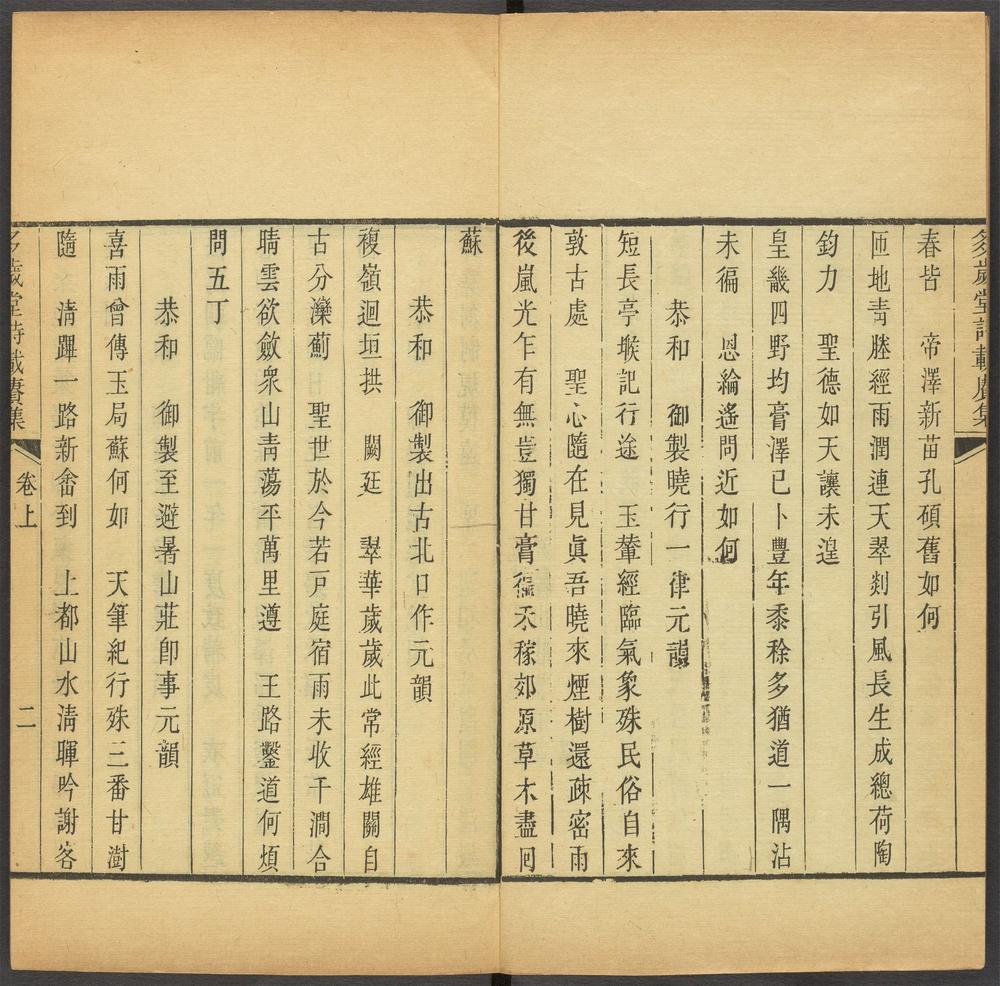 多歲堂詩載賡集
春皆　帝澤新苗孔碩舊如何
匝地青塍經雨潤連天翠剡引風長生成總荷陶
鈞力　聖德如天讓未遑
皇畿四野均膏澤已卜豐年黍稌多猶道一隅沾
未徧　恩綸遙問近如何
恭和　御製曉行一律元韻
短長亭堠記行途　玉輦經臨氣象殊民俗自來
敦古處　聖心隨在見眞吾曉來煙樹還疎密雨
後嵐光乍有無豈獨甘膏徧禾稼郊原草木盡回
蘇
恭和　御製出古北口作元韻
複嶺迴垣拱　闕廷　翠華歲歲此常經雄關自
古分灤薊　聖世於今若戸庭宿雨未收千澗合
晴雲欲斂衆山青蕩平萬里遵　王路鑿道何煩
問五丁
恭和　御製至避暑山莊卽事元韻
喜雨曾傳玉局蘇何如　天筆紀行殊三番甘澍
隨　淸蹕一路新畬到　上都山水淸暉吟謝客
多歲堂詩載賡集　卷上　二